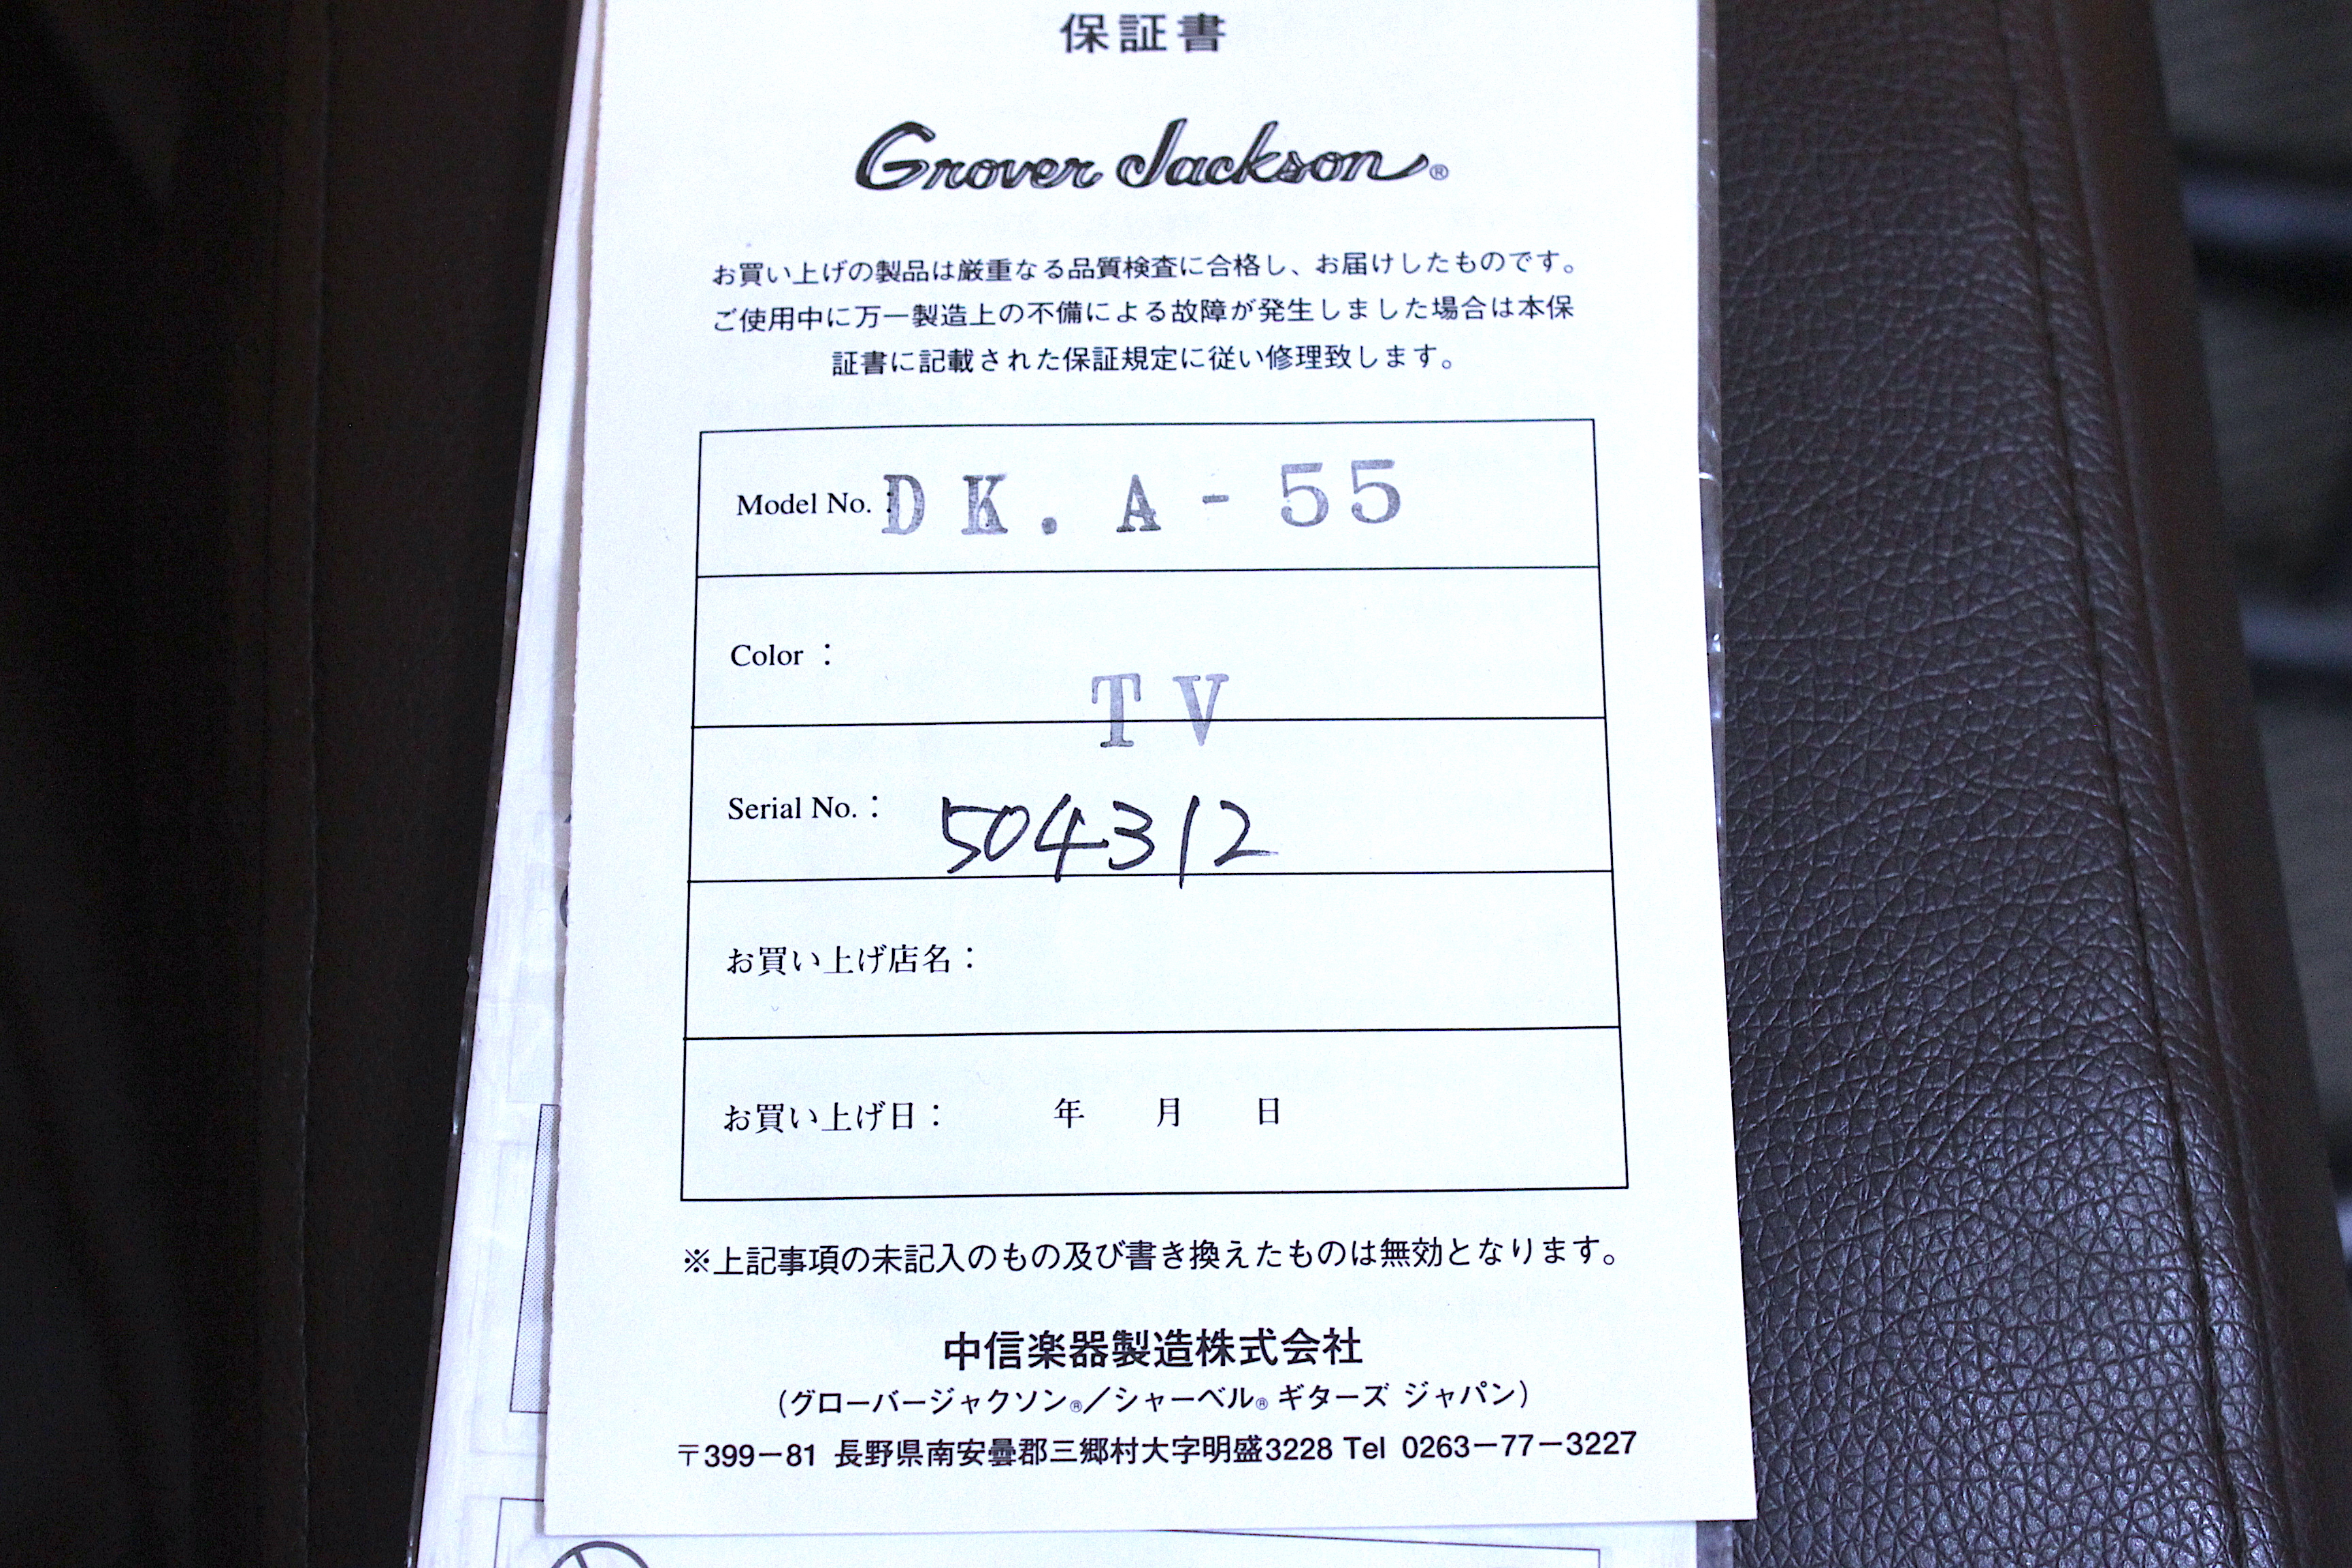 保証書
Grover Jackson®
お買い上げの製品は厳重なる品質検査に合格し、お届けしたものです。
ご使用中に万一製造上の不備による故障が発生しました場合は本保
証書に記載された保証規定に従い修理致します。
Model No.: DK.A-55
Color : TV
Serial No.: 504312
お買い上げ店名：
お買い上げ日： 年 月 日
※上記事項の未記入のもの及び書き換えたものは無効となります。
中信楽器製造株式会社
(グローバージャクソン®／シャーベル® ギターズ ジャパン)
〒399-81 長野県南安曇郡三郷村大字明盛3228 Tel 0263-77-3227